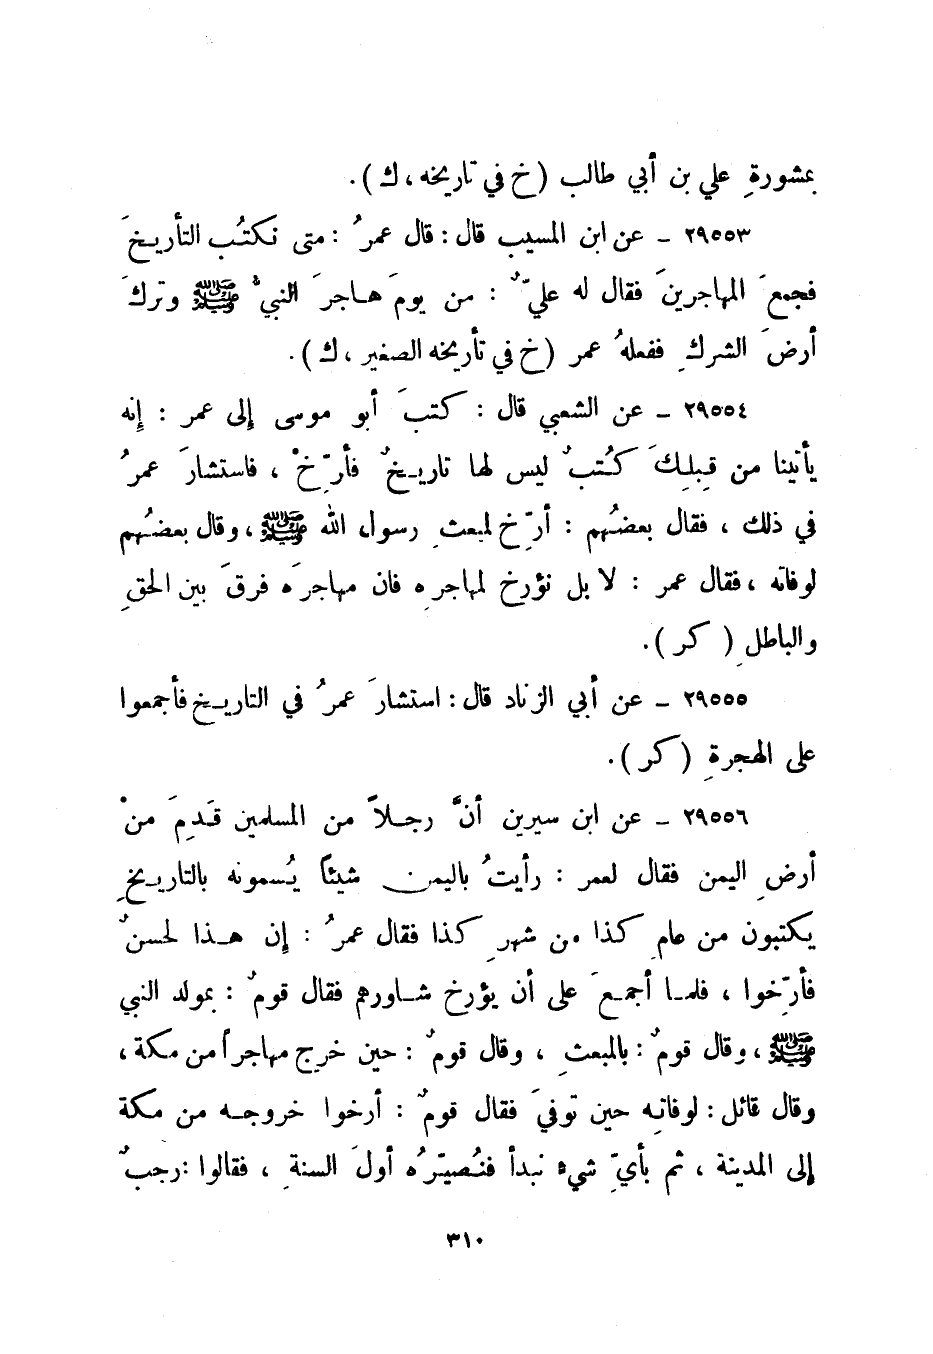 بمشورةِ علي بن أبي طالب (خ في تاريخه ، ك).
٢٩٥٥٣ ـ عن ابن المسيب قال : قال عمرُ : متى نكتُب التأريخَ
فجمعَ المهاجرينَ فقال له عليّ ٌ : من يومَ هاجرَ النبيُّ ﷺ وتركَ
أرضَ الشركِ ففعلهُ عمر (خ في تأريخه الصغير ، ك).
٢٩٥٥٤ ـ عن الشعبي قال : كتبَ أبو موسى إلى عمر : إنه
يأتينا من قِبلِكَ كُتبٌ ليس لها تاريخٌ فأرِّخْ ، فاستشارَ عمرُ
في ذلك ، فقال بعضُهم : أرِّخ لمبعثِ رسول الله ﷺ ، وقال بعضُهم
لوفاته ، فقال عمر : لا بل نؤرخ لمهاجرِه فان مهاجرَه فرقَ بين الحقِ
والباطلِ ( كر ).
٢٩٥٥٥ ـ عن أبي الزناد قال : استشارَ عمرُ في التاريخ فأجمعوا
على الهجرةِ (كر).
٢٩٥٥٦ ـ عن ابن سيرين أنَّ رجلاً من المسلمين قَدِمَ منْ
أرضِ اليمن فقال لعمر : رأيتُ باليمن شيئاً يُسمونه بالتاريخِ
يكتبون من عامِ كذا من شهرِ كذا فقال عمرُ : إن هذا لحسنٌ
فأرِّخوا ، فلما أجمعَ على أن يؤرخ شاورهم فقال قومٌ : بمولد النبي
ﷺ ، وقال قومٌ : بالمبعثِ ، وقال قومٌ : حين خرج مهاجراً من مكة ،
وقال قائل : لوفاتِه حين توفيَ فقال قومٌ : أرخوا خروجه من مكة
إلى المدينة ، ثم بأيِّ شيء نبدأ فنُصيّرُه أولَ السنةِ ، فقالوا : رجبٌ
٣١٠